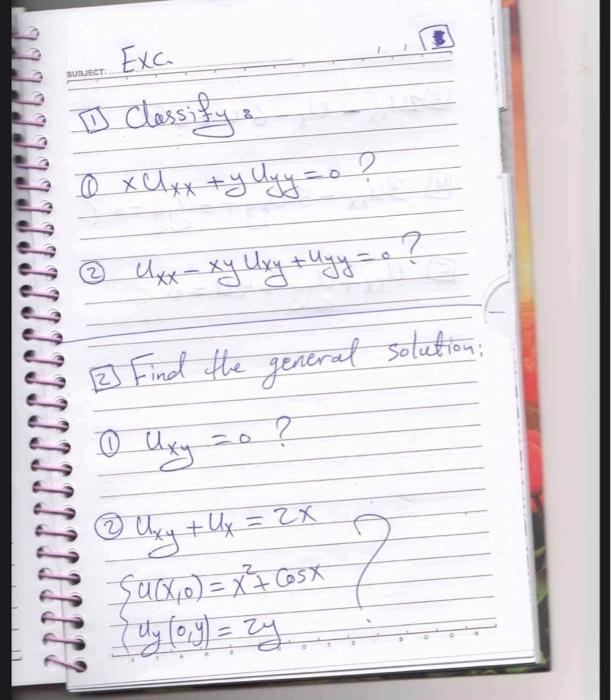 SUBJECT: Exc.
1 Classify:
① xUxx + yUyy = 0 ?
② Uxx - xyUxy + Uyy = 0 ?
2 Find the general solution:
① Uxy = 0 ?
② Uxy + Ux = 2x
{ u(x,0) = x² + Cosx ?
{ uy(0,y) = 2y